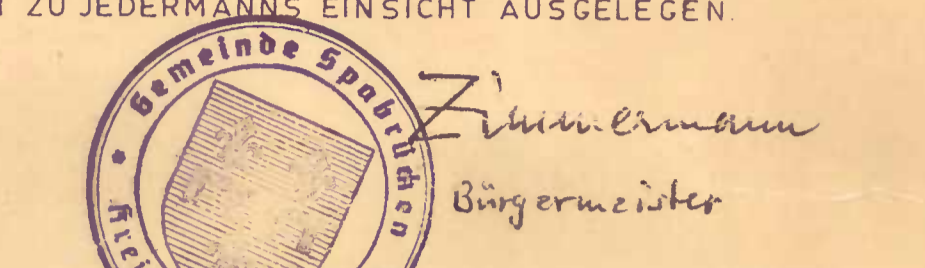 ZU JEDERMANNS EINSICHT AUSGELEGEN.
Gemeinde Spabrücken
Zimmermann
Bürgermeister